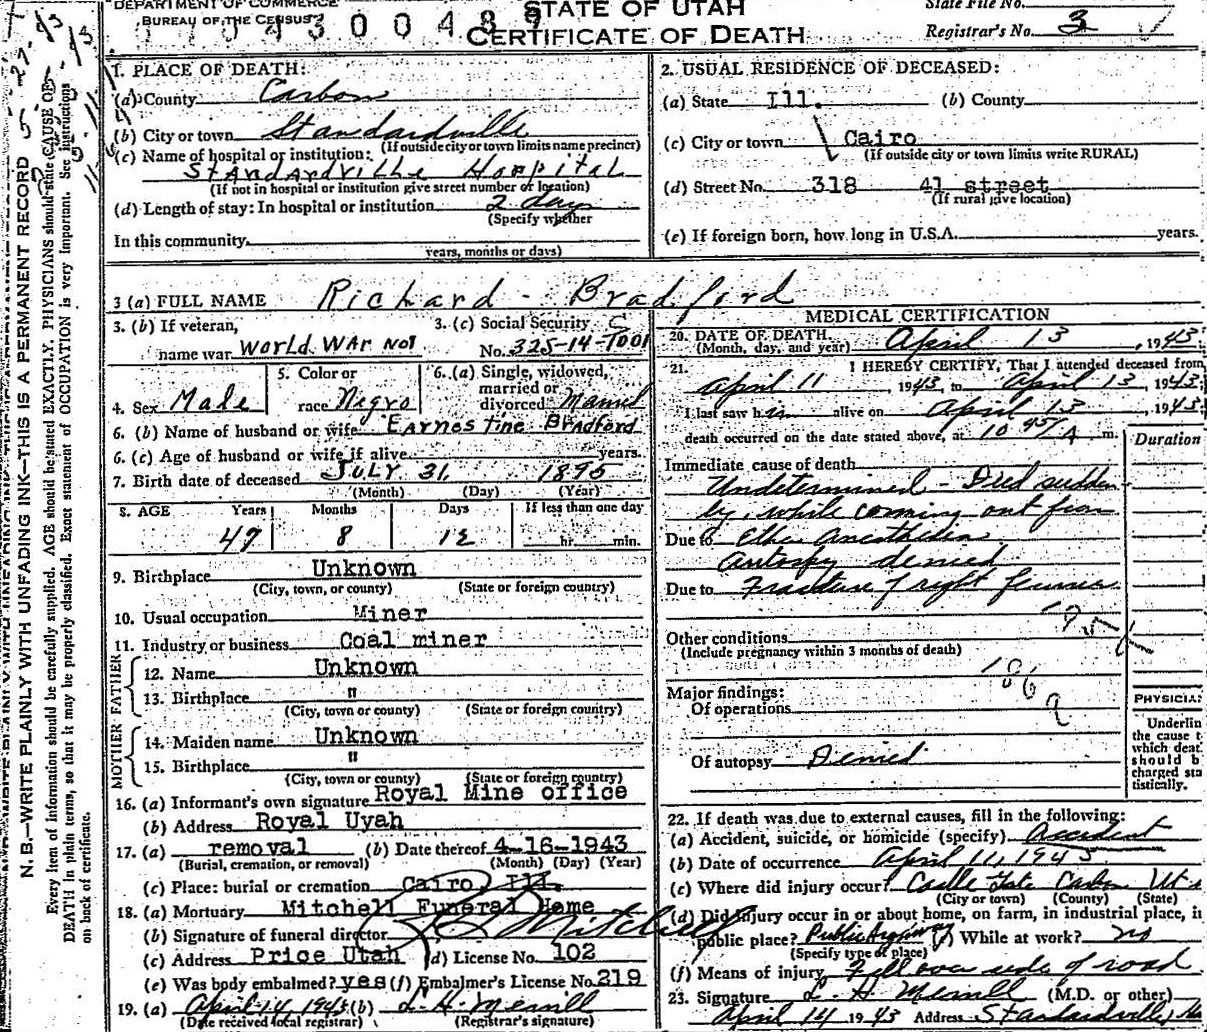 DEPARTMENT OF COMMERCE
BUREAU OF THE CENSUS
STATE OF UTAH
CERTIFICATE OF DEATH
State File No.
Registrar's No. 3
N. B.—WRITE PLAINLY WITH UNFADING INK—THIS IS A PERMANENT RECORD
Every item of information should be carefully supplied. AGE should be stated EXACTLY. PHYSICIANS should state CAUSE OF
DEATH in plain terms, so that it may be properly classified. Exact statement of OCCUPATION is very important. See instructions
on back of certificate.
1. PLACE OF DEATH:
(a) County Carbon
(b) City or town Standardville
(If outside city or town limits name precinct)
(c) Name of hospital or institution:
Standardville Hospital
(If not in hospital or institution give street number or location)
(d) Length of stay: In hospital or institution 2 days
(Specify whether
In this community
years, months or days)
2. USUAL RESIDENCE OF DECEASED:
(a) State Ill. (b) County
(c) City or town Cairo
(If outside city or town limits write RURAL)
(d) Street No. 318 41 street
(If rural give location)
(e) If foreign born, how long in U.S.A. years.
3 (a) FULL NAME Richard - Bradford
3. (b) If veteran,
name war World War No1
3. (c) Social Security
No. 325-14-7001
4. Sex Male
5. Color or
race Negro
6. (a) Single, widowed,
married or
divorced Married
6. (b) Name of husband or wife Earnestine Bradford
6. (c) Age of husband or wife if alive years.
7. Birth date of deceased July 31, 1895
(Month) (Day) (Year)
8. AGE Years Months Days If less than one day
47 8 12 hr. min.
9. Birthplace Unknown
(City, town, or county) (State or foreign country)
10. Usual occupation Miner
11. Industry or business Coal miner
FATHER
12. Name Unknown
13. Birthplace "
(City, town or county) (State or foreign country)
MOTHER
14. Maiden name Unknown
15. Birthplace "
(City, town or county) (State or foreign country)
16. (a) Informant's own signature Royal Mine office
(b) Address Royal Uyah
17. (a) removal (b) Date thereof 4-16-1943
(Burial, cremation, or removal) (Month) (Day) (Year)
(c) Place: burial or cremation Cairo, Ill.
18. (a) Mortuary Mitchell Funeral Home
(b) Signature of funeral director Mitchell
(c) Address Price Utah (d) License No. 102
(e) Was body embalmed? yes (f) Embalmer's License No. 219
19. (a) April 14, 1943 (b) L. H. Merrill
(Date received local registrar) (Registrar's signature)
MEDICAL CERTIFICATION
20. DATE OF DEATH
(Month, day, and year) April 13, 1943.
21. I HEREBY CERTIFY, That I attended deceased from
April 11, 1943, to April 13, 1943;
I last saw him alive on April 13, 1943;
death occurred on the date stated above, at 10 45/A m.
Duration
Immediate cause of death
Undetermined - Died sudden
ly, while coming out from
Due to Ether Anesthesia
Autospy denied
Due to Fracture of right femur
195
Other conditions
(Include pregnancy within 3 months of death)
186a
Major findings:
Of operations
Of autopsy Denied
PHYSICIA
Underlin
the cause t
which deat
should b
charged sta
tistically.
22. If death was due to external causes, fill in the following:
(a) Accident, suicide, or homicide (specify) Accident
(b) Date of occurrence April 11, 1943
(c) Where did injury occur? Castle Gate Carbon Ut
(City or town) (County) (State)
(d) Did injury occur in or about home, on farm, in industrial place, in
public place? Public Highway (e) While at work? no
(Specify type of place)
(f) Means of injury Fell over side of road
23. Signature L. H. Merrill (M.D. or other)
April 14 1943 Address Standardville,